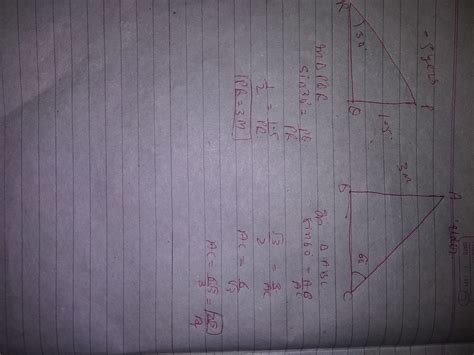 P
1.5
Q
30
R
In Δ PQR
sin30° = PQ/PR
1/2 = 1.5/PR
PR = 3 m
A
3m
B
60
C
In Δ ABC
sin60 = AB/AC
√3/2 = 3/AC
AC = 6/√3
AC = 6√3/3 = 2√3